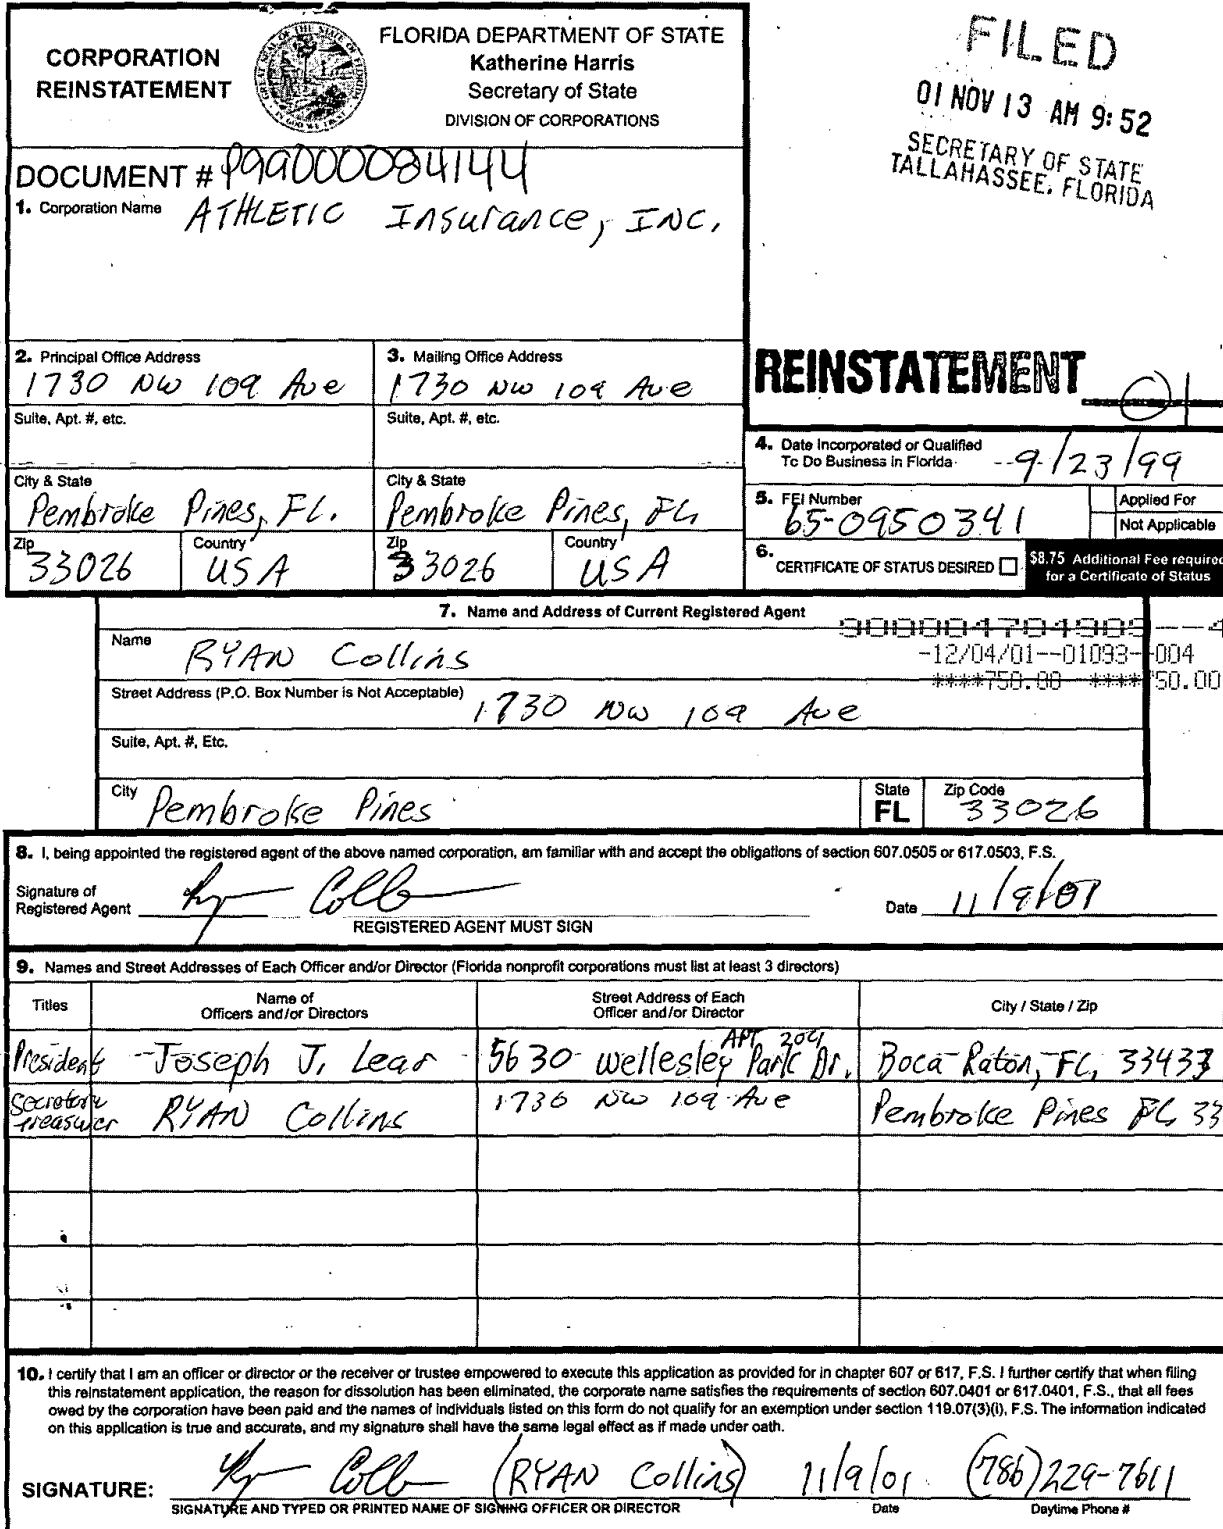 CORPORATION
REINSTATEMENT
FLORIDA DEPARTMENT OF STATE
Katherine Harris
Secretary of State
DIVISION OF CORPORATIONS
FILED
01 NOV 13 AM 9:52
SECRETARY OF STATE
TALLAHASSEE, FLORIDA
DOCUMENT # P99000084144
1. Corporation Name ATHLETIC Insurance, INC.
2. Principal Office Address
1730 NW 109 Ave
3. Mailing Office Address
1730 NW 109 Ave
REINSTATEMENT 01
Suite, Apt. #, etc.
Suite, Apt. #, etc.
4. Date Incorporated or Qualified
To Do Business in Florida 9/23/99
City & State
Pembroke Pines, FL.
City & State
Pembroke Pines, FL
5. FEI Number
65-0950341
Applied For
Not Applicable
Zip
33026
Country
USA
Zip
33026
Country
USA
6. CERTIFICATE OF STATUS DESIRED
$8.75 Additional Fee required
for a Certificate of Status
7. Name and Address of Current Registered Agent
Name RYAN Collins
900004704909--4
-12/04/01--01093--004
****750.00 ****750.00
Street Address (P.O. Box Number is Not Acceptable) 1730 NW 109 Ave
Suite, Apt. #, Etc.
City Pembroke Pines
State
FL
Zip Code
33026
8. I, being appointed the registered agent of the above named corporation, am familiar with and accept the obligations of section 607.0505 or 617.0503, F.S.
Signature of
Registered Agent
REGISTERED AGENT MUST SIGN
Date 11/9/01
9. Names and Street Addresses of Each Officer and/or Director (Florida nonprofit corporations must list at least 3 directors)
Titles
Name of
Officers and/or Directors
Street Address of Each
Officer and/or Director
City / State / Zip
President Joseph J. Lear 5630 Wellesley Park Dr. APT 204 Boca Raton, FL, 33433
Secretary
treasurer RYAN Collins 1730 NW 109 Ave Pembroke Pines FL 33
10. I certify that I am an officer or director or the receiver or trustee empowered to execute this application as provided for in chapter 607 or 617, F.S. I further certify that when filing
this reinstatement application, the reason for dissolution has been eliminated, the corporate name satisfies the requirements of section 607.0401 or 617.0401, F.S., that all fees
owed by the corporation have been paid and the names of individuals listed on this form do not qualify for an exemption under section 119.07(3)(i), F.S. The information indicated
on this application is true and accurate, and my signature shall have the same legal effect as if made under oath.
SIGNATURE: (RYAN Collins) 11/9/01 (786)229-7611
SIGNATURE AND TYPED OR PRINTED NAME OF SIGNING OFFICER OR DIRECTOR
Date
Daytime Phone #